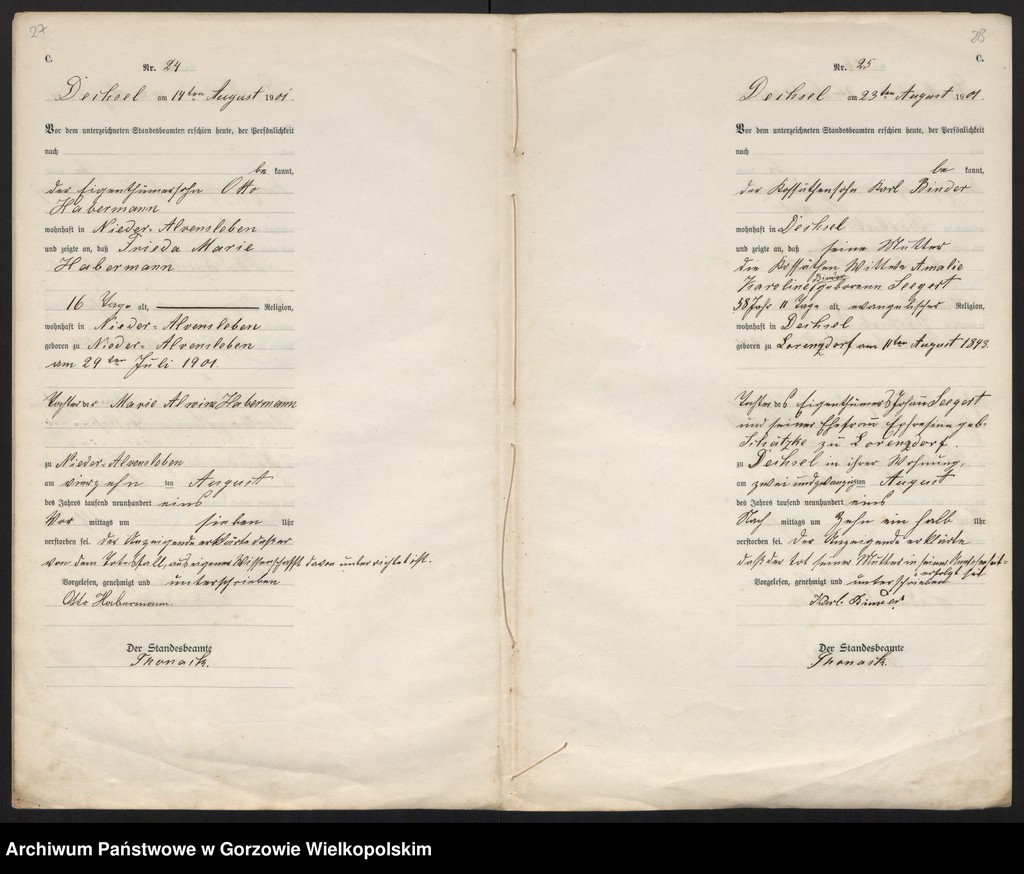 27
C.
Nr. 24
Dechsel am 14ten August 1901.
Vor dem unterzeichneten Standesbeamten erschien heute, der Persönlichkeit
nach
be kannt,
der Eigenthümersohn Otto
Habermann
wohnhaft in Nieder-Alvensleben
und zeigte an, daß Frieda Marie
Habermann
16 Tage alt, Religion,
wohnhaft in Nieder-Alvensleben
geboren zu Nieder-Alvensleben
am 29ten Juli 1901
Tochter der Marie Alwine Habermann
zu Nieder-Alvensleben
am vierzehn ten August
des Jahres tausend neunhundert eins
Vor mittags um sieben Uhr
verstorben sei. Der Anzeigende erklärte daß er
von dem Todesfall, aus eigener Wissenschafft davon unterrichtet ist.
Vorgelesen, genehmigt und unterschrieben
Otto Habermann.
Der Standesbeamte
28
C.
Nr. 25
Dechsel am 23ten August 1901.
Vor dem unterzeichneten Standesbeamten erschien heute, der Persönlichkeit
nach
be kannt,
der Kossäthensohn Karl Binder
wohnhaft in Dechsel
und zeigte an, daß seine Mutter
die Kossäthen Wittwe Amalie
Karoline Binder geborenn Seegert
58 Jahr 11 Tage alt, evangelischer Religion,
wohnhaft in Dechsel
geboren zu Lorenzdorf am 11ten August 1843.
Tochter des Eigenthümers Johann Seegert
und seiner Ehefrau geb.
Schätzke zu Lorenzdorf.
zu Dechsel in ihrer Wohnung,
am zwei und zwanzigsten August
des Jahres tausend neunhundert eins
Nach mittags um Zehn ein halb Uhr
verstorben sei. Der Anzeigende erklärte
daß der Tot seiner Mutter in seiner Anwesenheit
erfolgt sei
Vorgelesen, genehmigt und unterschrieben
Karl. Binder
Der Standesbeamte
Archiwum Państwowe w Gorzowie Wielkopolskim